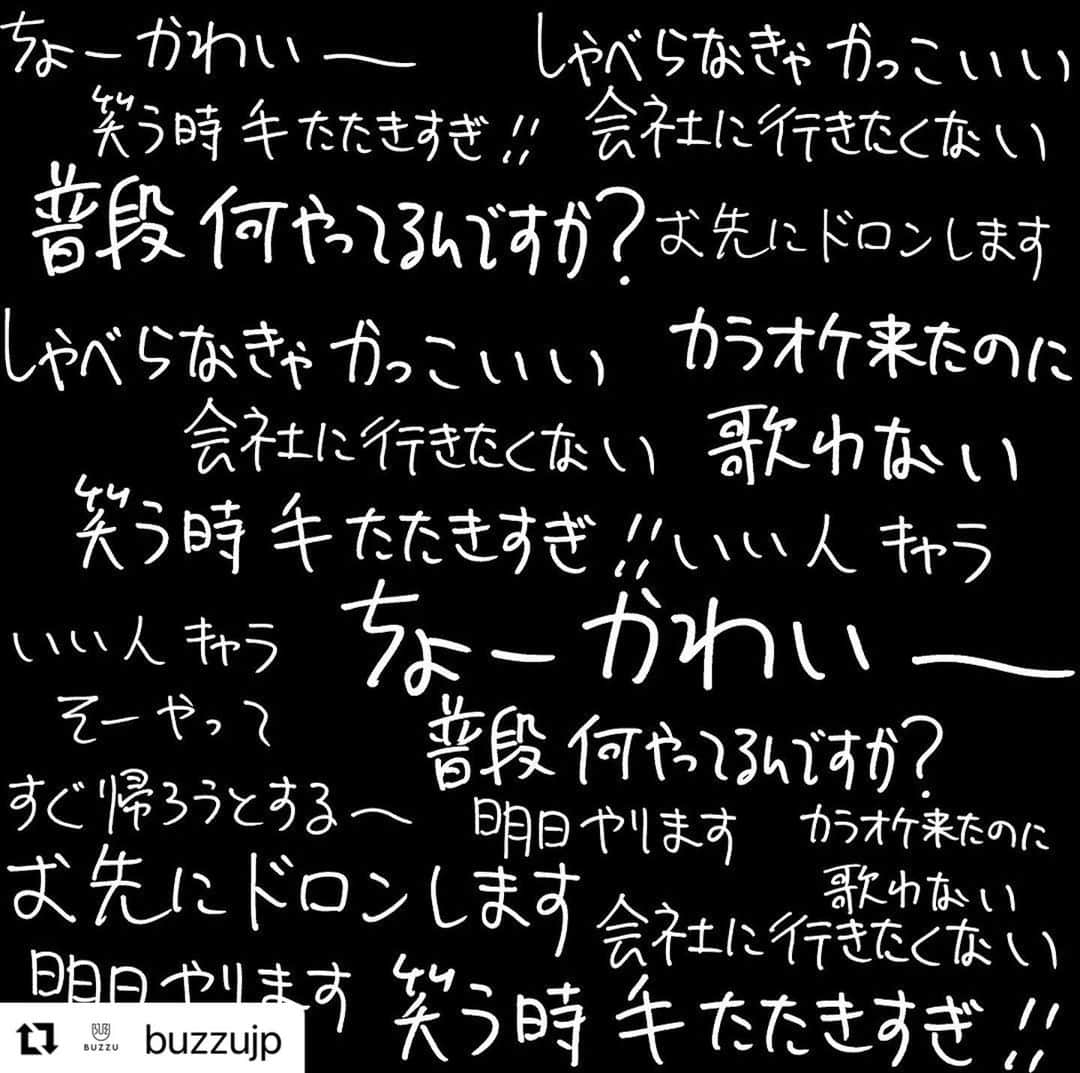 ちょーかわいー
しゃべらなきゃ かっこいい
笑う時 手 たたきすぎ!!
会社に行きたくない
普段 何やってるんですか?
お先にドロンします
しゃべらなきゃ かっこいい
カラオケ来たのに
会社に行きたくない
歌わない
笑う時 手 たたきすぎ!!
いい人 キャラ
いい人 キャラ
ちょーかわいー
そーやって
普段 何やってるんですか?
すぐ帰ろうとする〜
明日やります
カラオケ来たのに
お先にドロンします
歌わない
会社に行きたくない
明日やります
笑う時 手 たたきすぎ!!
BUZZU
buzzujp